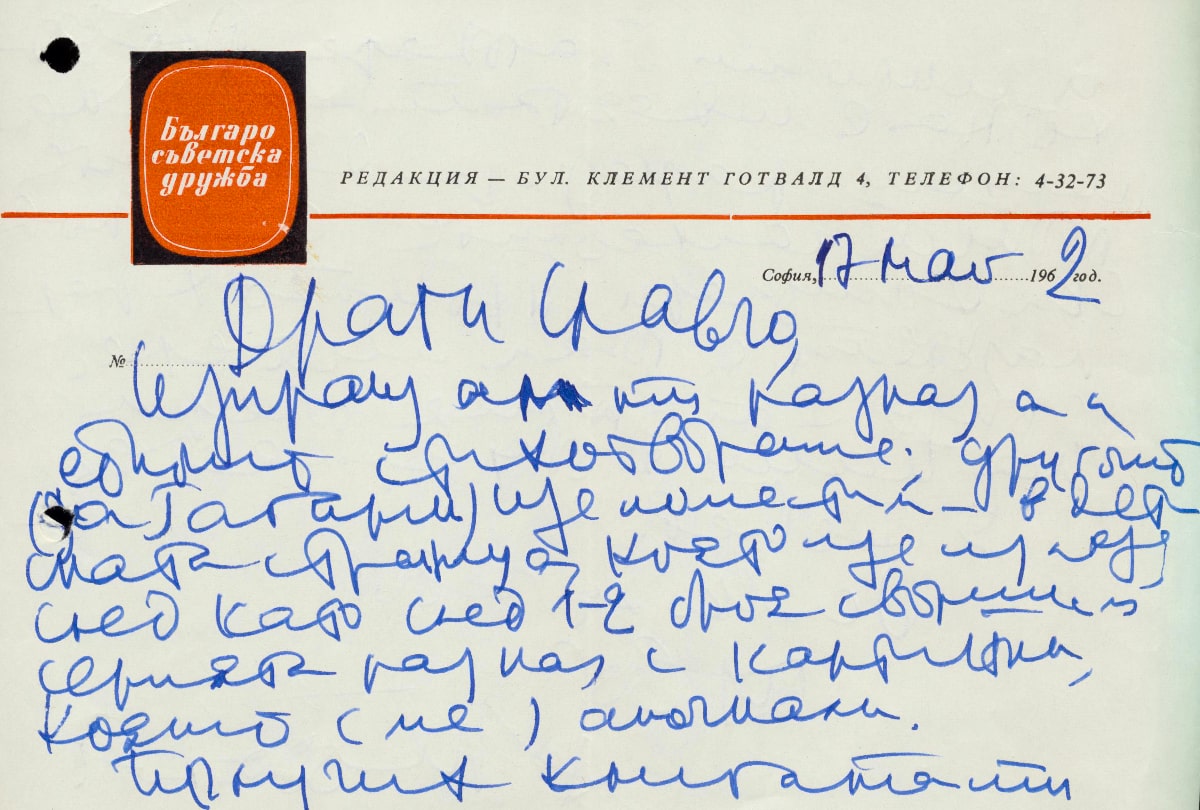 Българо
съветска
дружба
РЕДАКЦИЯ — БУЛ. КЛЕМЕНТ ГОТВАЛД 4, ТЕЛЕФОН: 4-32-73
София, 17 май 1962 год.
№
Драги Славчо,
Изпращам ти разказа и
едното стихотворение. Другото
(за Гагарин) ще поместим в дет
ската страница, която ще излезе
след като след 1-2 броя свършим
серията разказ с картинки,
която (не)
Получих книгата ти